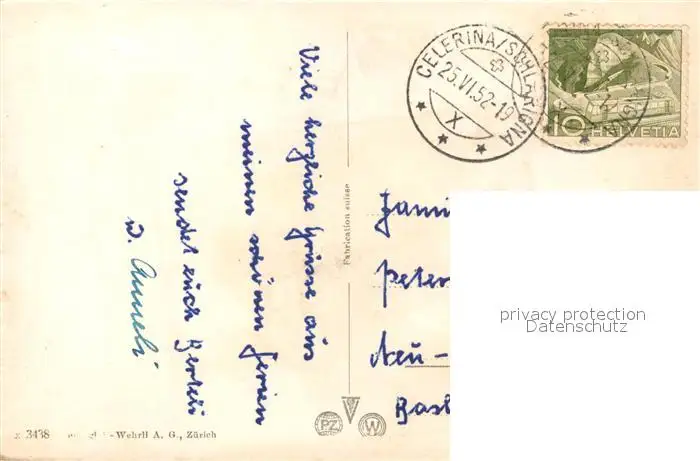 Viele herzliche Grüsse aus
meinen schönen Ferien
sendet euch Berteli
u. Anneli
Fabrication suisse
CELERINA/SCHLARIGNA
25.VI.52-19
X
10 HELVETIA
Fami
Peter
Neu-
Basl
privacy protection
Datenschutz
3438
-Wehrli A. G., Zürich
PZ
W